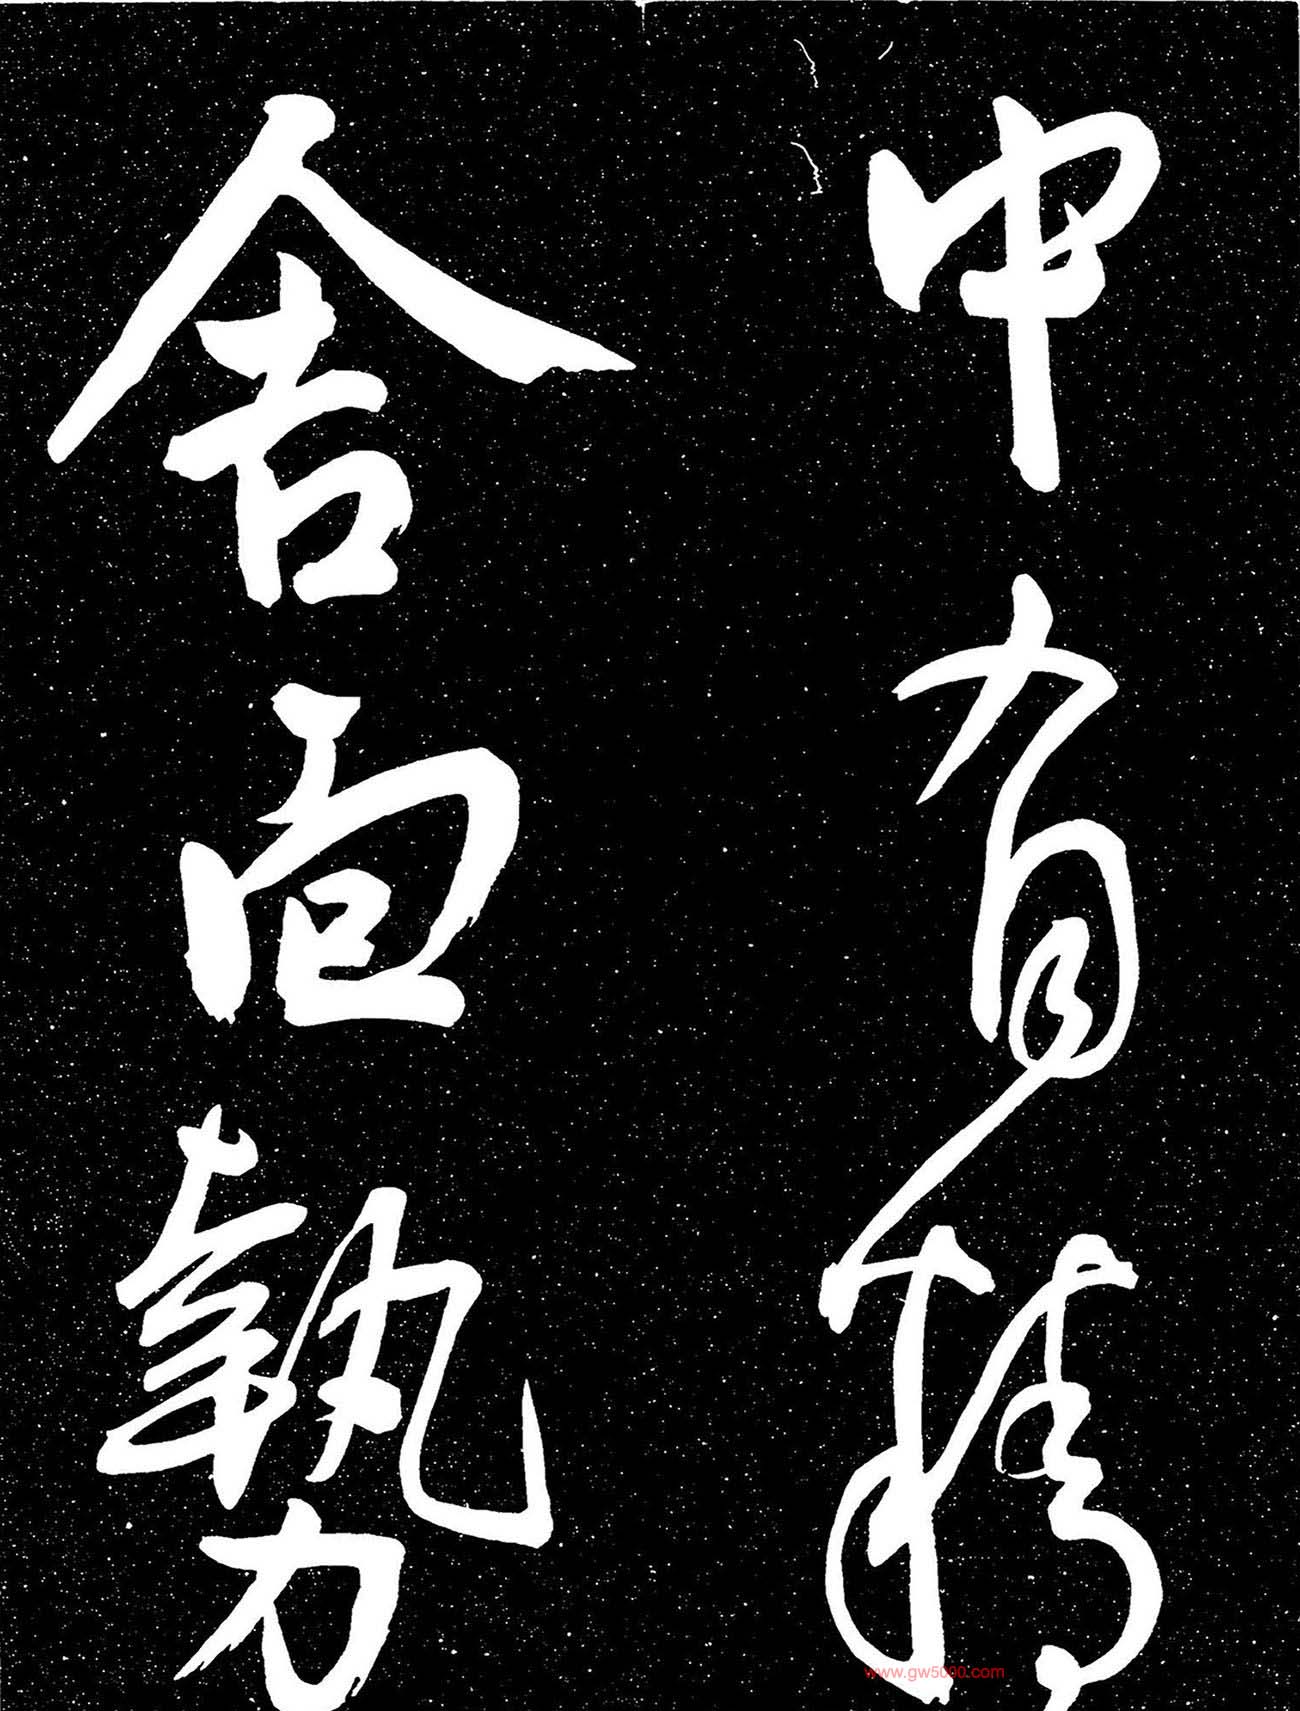 中有精
舍面勢
www.gw5000.com